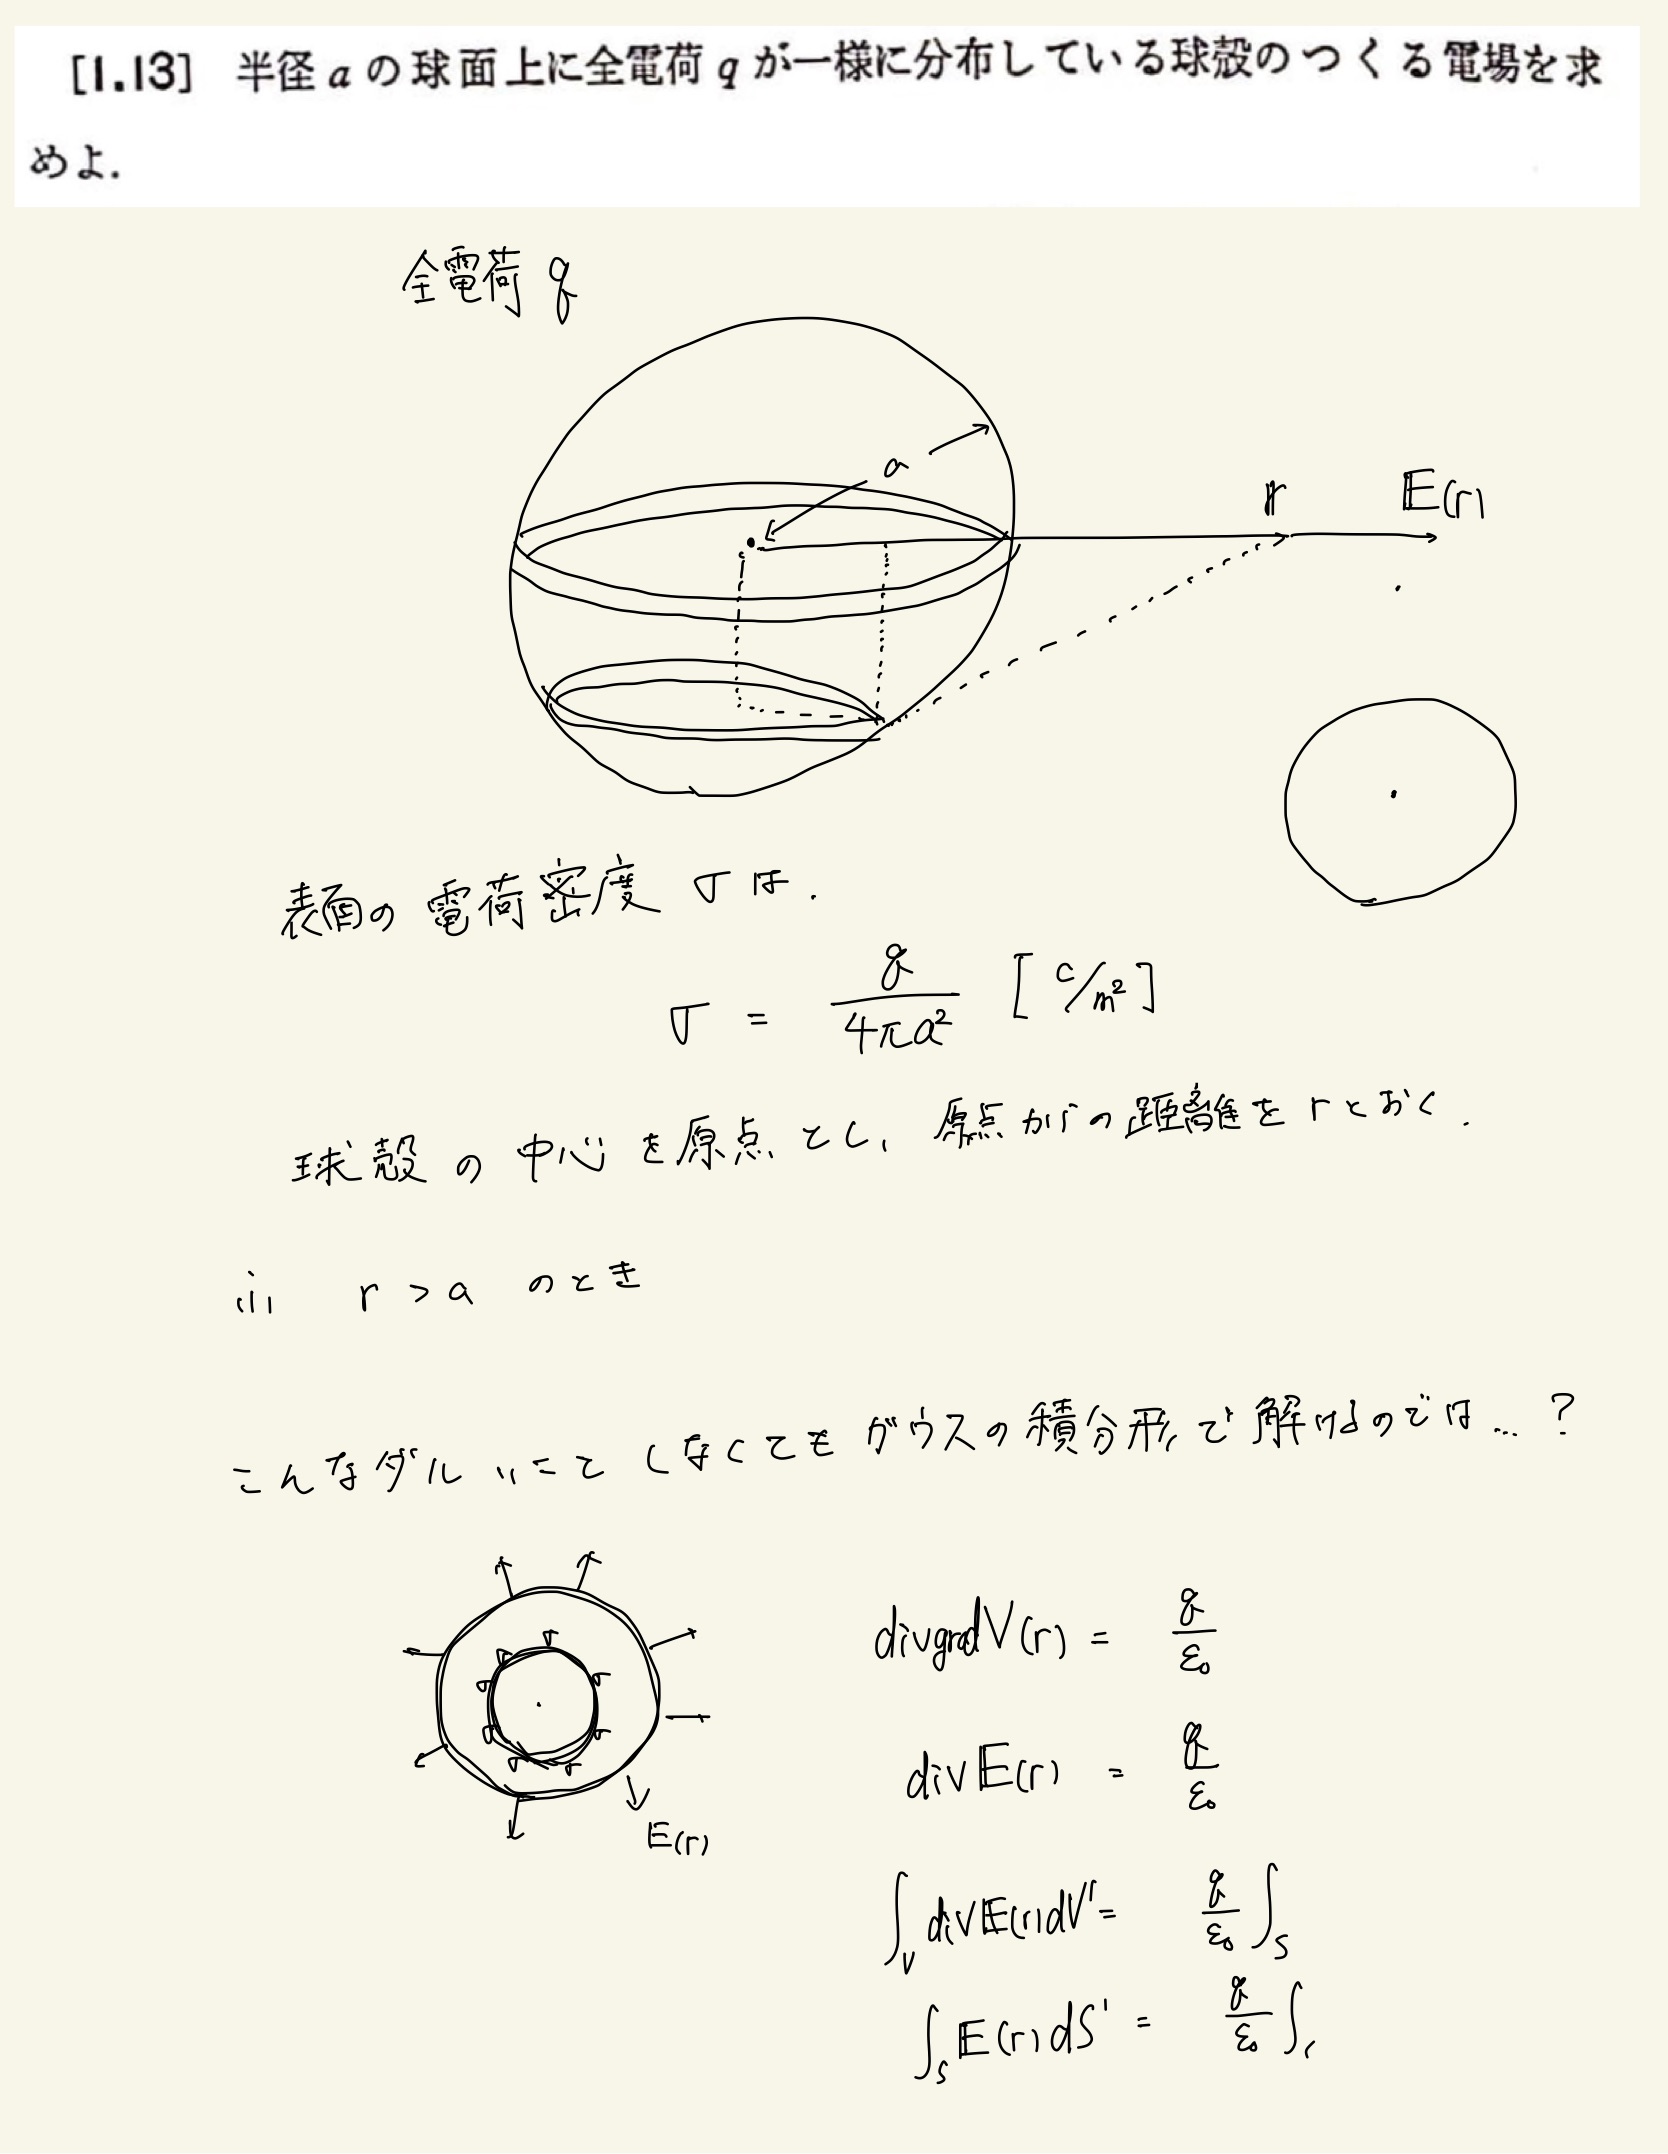 [1.13] 半径 a の球面上に全電荷 q が一様に分布している球殻のつくる電場を求
めよ.
全電荷 q
a
r E(r)
表面の電荷密度 σ は.
σ = q/4πa² [C/m²]
球殻の中心を原点とし、原点からの距離を r とおく.
(i) r > a のとき
こんなダルいことしなくてもガウスの積分形で解けるのでは…?
σ σ σ σ σ σ σ σ
E(r)
divgradV(r) = q/ε₀
divE(r) = q/ε₀
∫_V divE(r)dV' = q/ε₀ ∫_S
∫_S E(r)dS' = q/ε₀ ∫